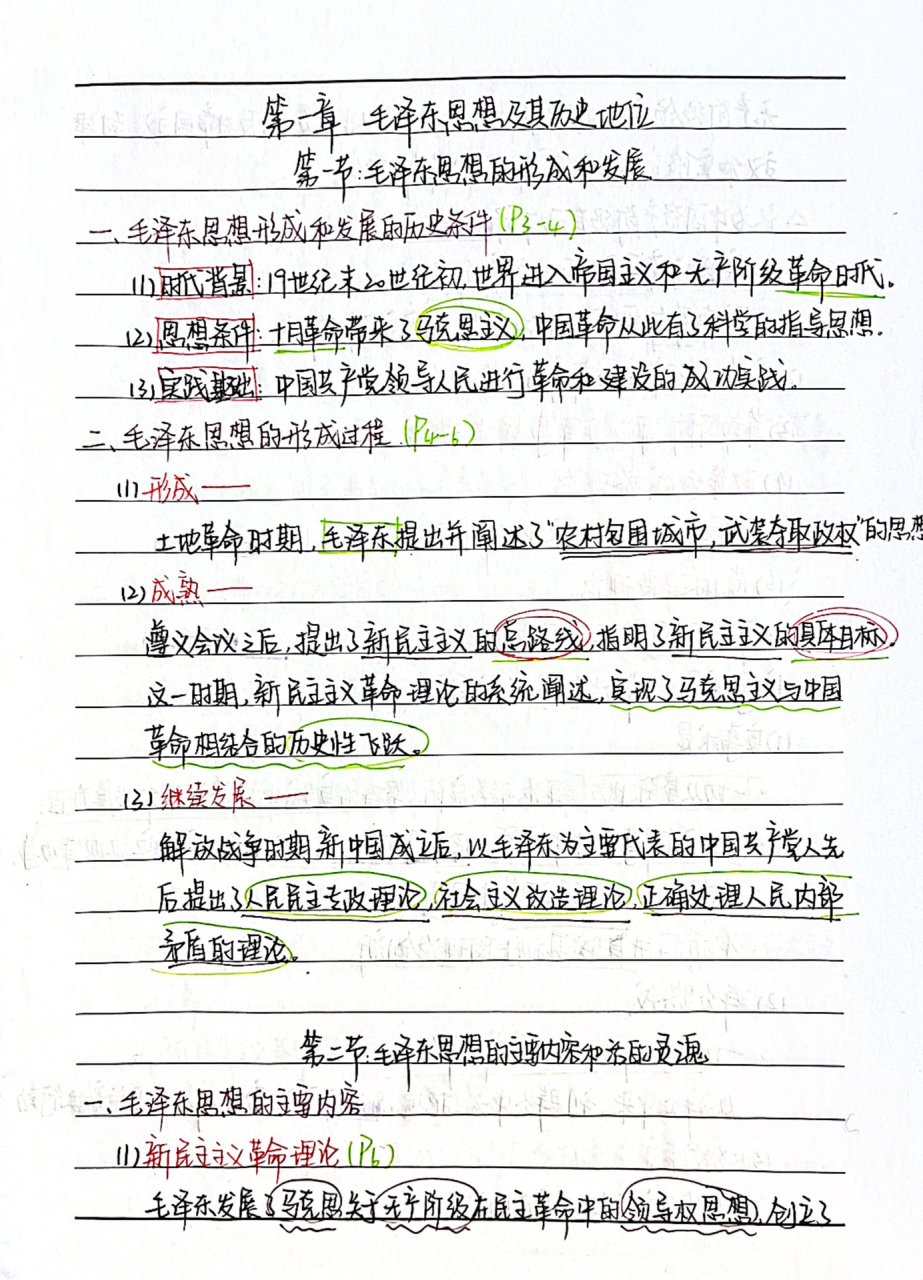 第一章 毛泽东思想及其历史地位
第一节:毛泽东思想的形成和发展
一、毛泽东思想形成和发展的历史条件(P3-4)
(1)时代背景:19世纪末20世纪初,世界进入帝国主义和无产阶级革命时代。
(2)思想条件:十月革命带来了马克思主义,中国革命从此有了科学的指导思想.
(3)实践基础:中国共产党领导人民进行革命和建设的成功实践.
二、毛泽东思想的形成过程.(P4-6)
(1)形成——
土地革命时期,毛泽东提出并阐述了"农村包围城市,武装夺取政权"的思想
(2)成熟——
遵义会议之后,提出了新民主主义的总路线,指明了新民主主义的具体目标.
这一时期,新民主主义革命理论的系统阐述,实现了马克思主义与中国
革命相结合的历史性飞跃。
(3)继续发展——
解放战争时期新中国成立后,以毛泽东为主要代表的中国共产党人先
后提出了人民民主专政理论,社会主义改造理论,正确处理人民内部
矛盾的理论。
第二节:毛泽东思想的主要内容和活的灵魂
一、毛泽东思想的主要内容
(1)新民主主义革命理论(P6)
毛泽东发展了马克思关于无产阶级在民主革命中的领导权思想,创立了